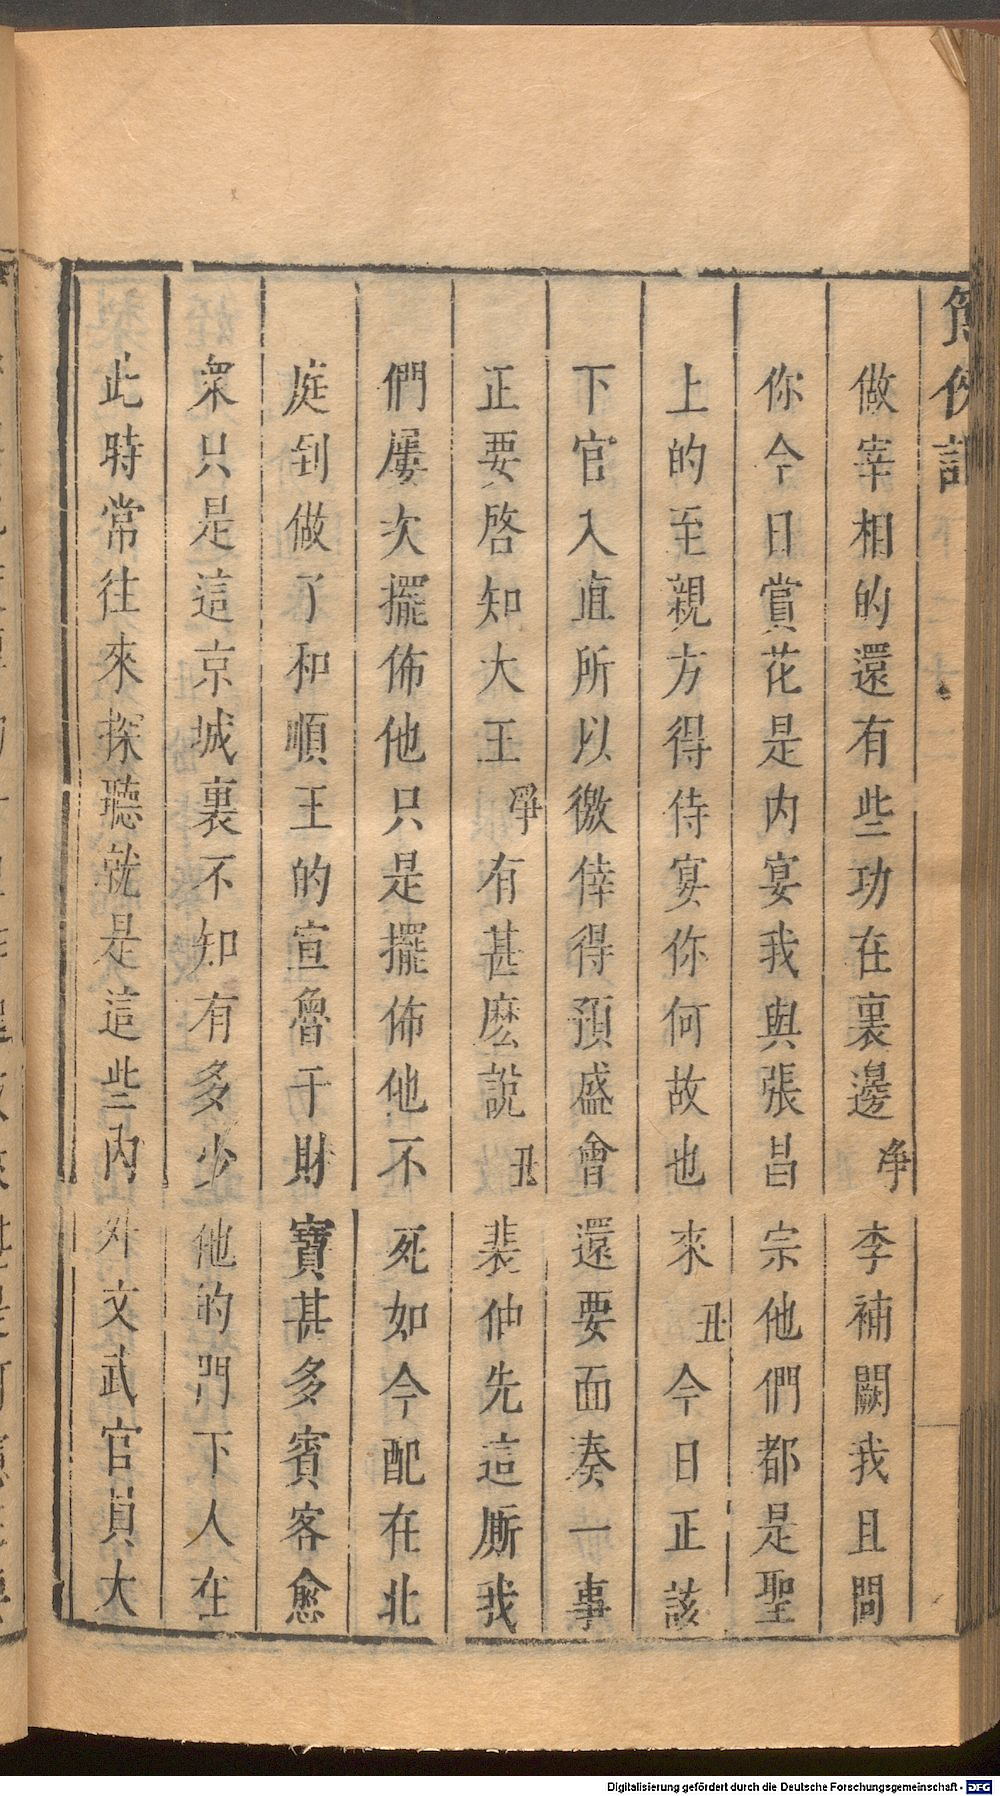 俠記
做宰相的還有些功在裏邊淨李補闕我且問
你今日賞花是内宴我與張昌宗他們都是聖
上的至親方得侍宴你何故也來丑今日正該
下官入直所以徼倖得預盛會還要面奏一事
正要啓知大王淨有甚麽説丑裴仲先這厮我
們屢次擺佈他只是擺佈他不死如今配在北
庭到做了和順王的宣魯干財寶甚多賓客愈
衆只是這京城裏不知有多少他的門下人在
此時常往來探聽就是這些内外文武官員大
Digitalisierung gefördert durch die Deutsche Forschungsgemeinschaft - DFG